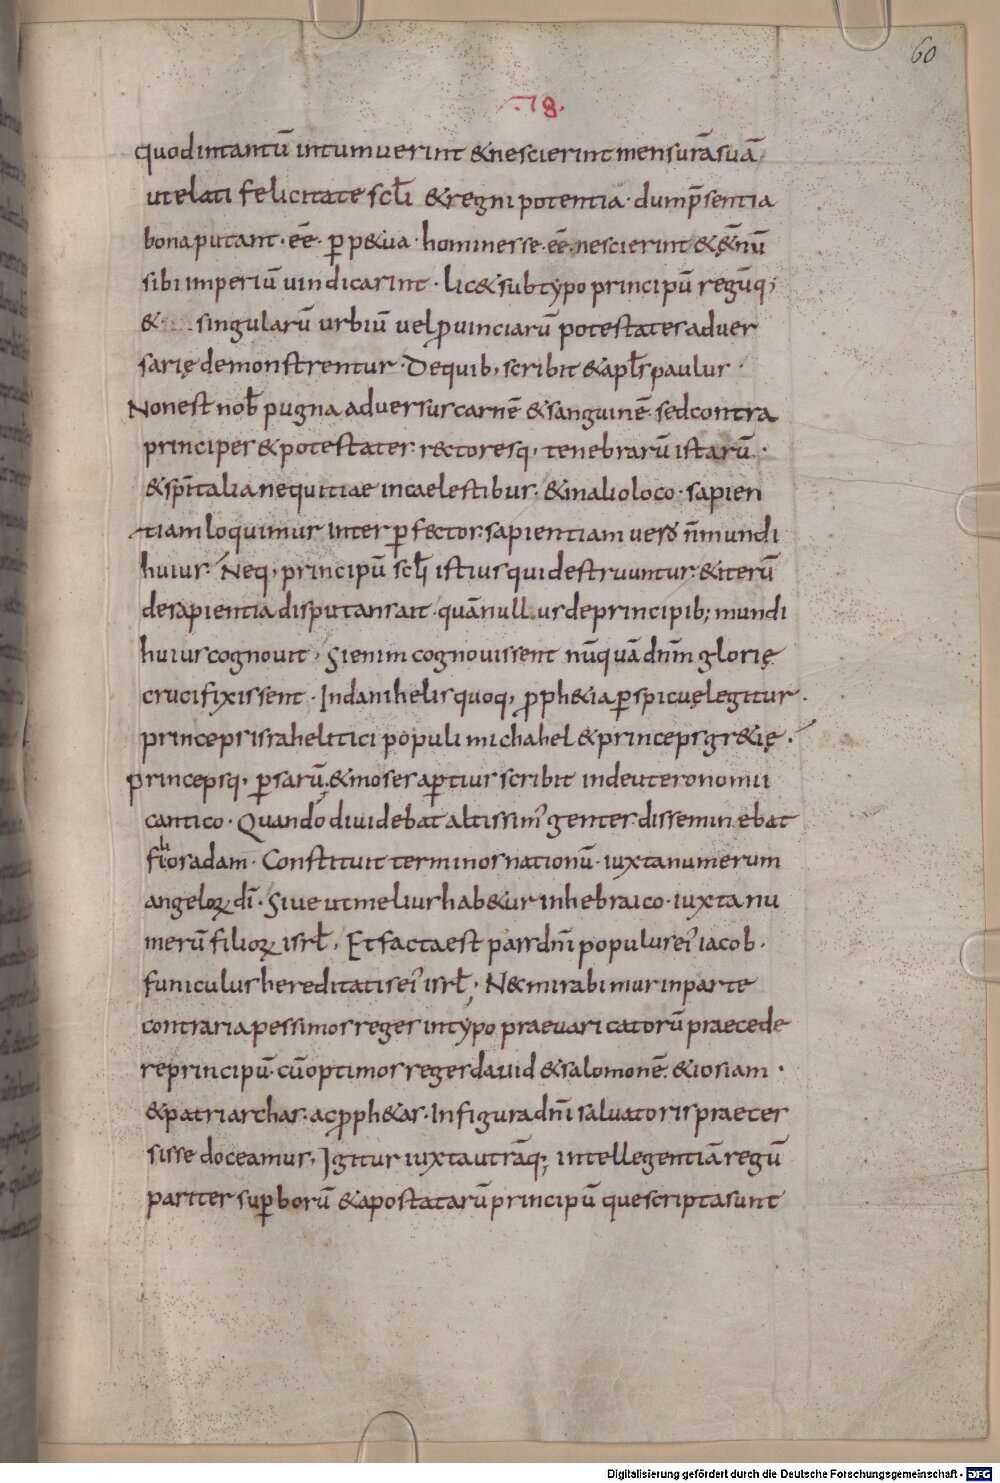 60
·78·
quod intantū intumuerint &nescierint mensurā suā
ut elati felicitate scłi &regni potentia · dum p̄sentia
bona putant · eē · ꝑp&ua · homines se · eē · nescierint & &̨nū
sibi imperiū uindicarint · lic& sub typo principū regūq;
& singularū urbiū uel ꝓuinciarū potestates aduer
sarię demonstrentur · De quib, scribit & apłs paulus
Non est nob̄ pugna aduersus carnē & sanguinē · sed contra
principes & potestates · rectoresq, tenebrarū istarū ·
& spīitalia nequitiae in caelestibus · & in alio loco · sapien
tiam loquimur inter ꝑfectos · sapientiam uero ñ mundi
huius · Neq, principū scłi istius qui destruuntur · & iterū
de sapientia disputans ait · quā nullus de principib; mundi
huius cognouit, Si enim cognouissent nūquā dn̄m glorię
crucifixissent · In danihelis quoq, ꝓph&ia ꝑspicuę legitur ·
princeps israhelitici populi michahel & princeps gr&ię ·
princepsq, ꝑsarū, & moses aꝑtius scribit in deuteronomii
cantico · Quando diuidebat altissim' gentes · disseminebat
filios adam · Constituit terminos nationū · iuxta numerum
angeloꝝ dī · Siue ut melius hab&ur in hebraico · iuxta nu
merū filioꝝ isrł, Et facta est pars dn̄i populus ei' iacob ·
funiculus hereditatis ei' isrł; N& miramimur in parte
contraria pessimos reges in typo praeuaricatorū praecede
re principū · cū optimos reges dauid & salomonē · & iosiam ·
& patriarchas · ac ꝓph&as · In figura dn̄i saluatoris praeces
sisse doceamus, Igitur iuxta utrāq; intellegentiā regū
pariter suꝑborū & apostatarū principū que scripta sunt
Digitalisierung gefördert durch die Deutsche Forschungsgemeinschaft - DFG